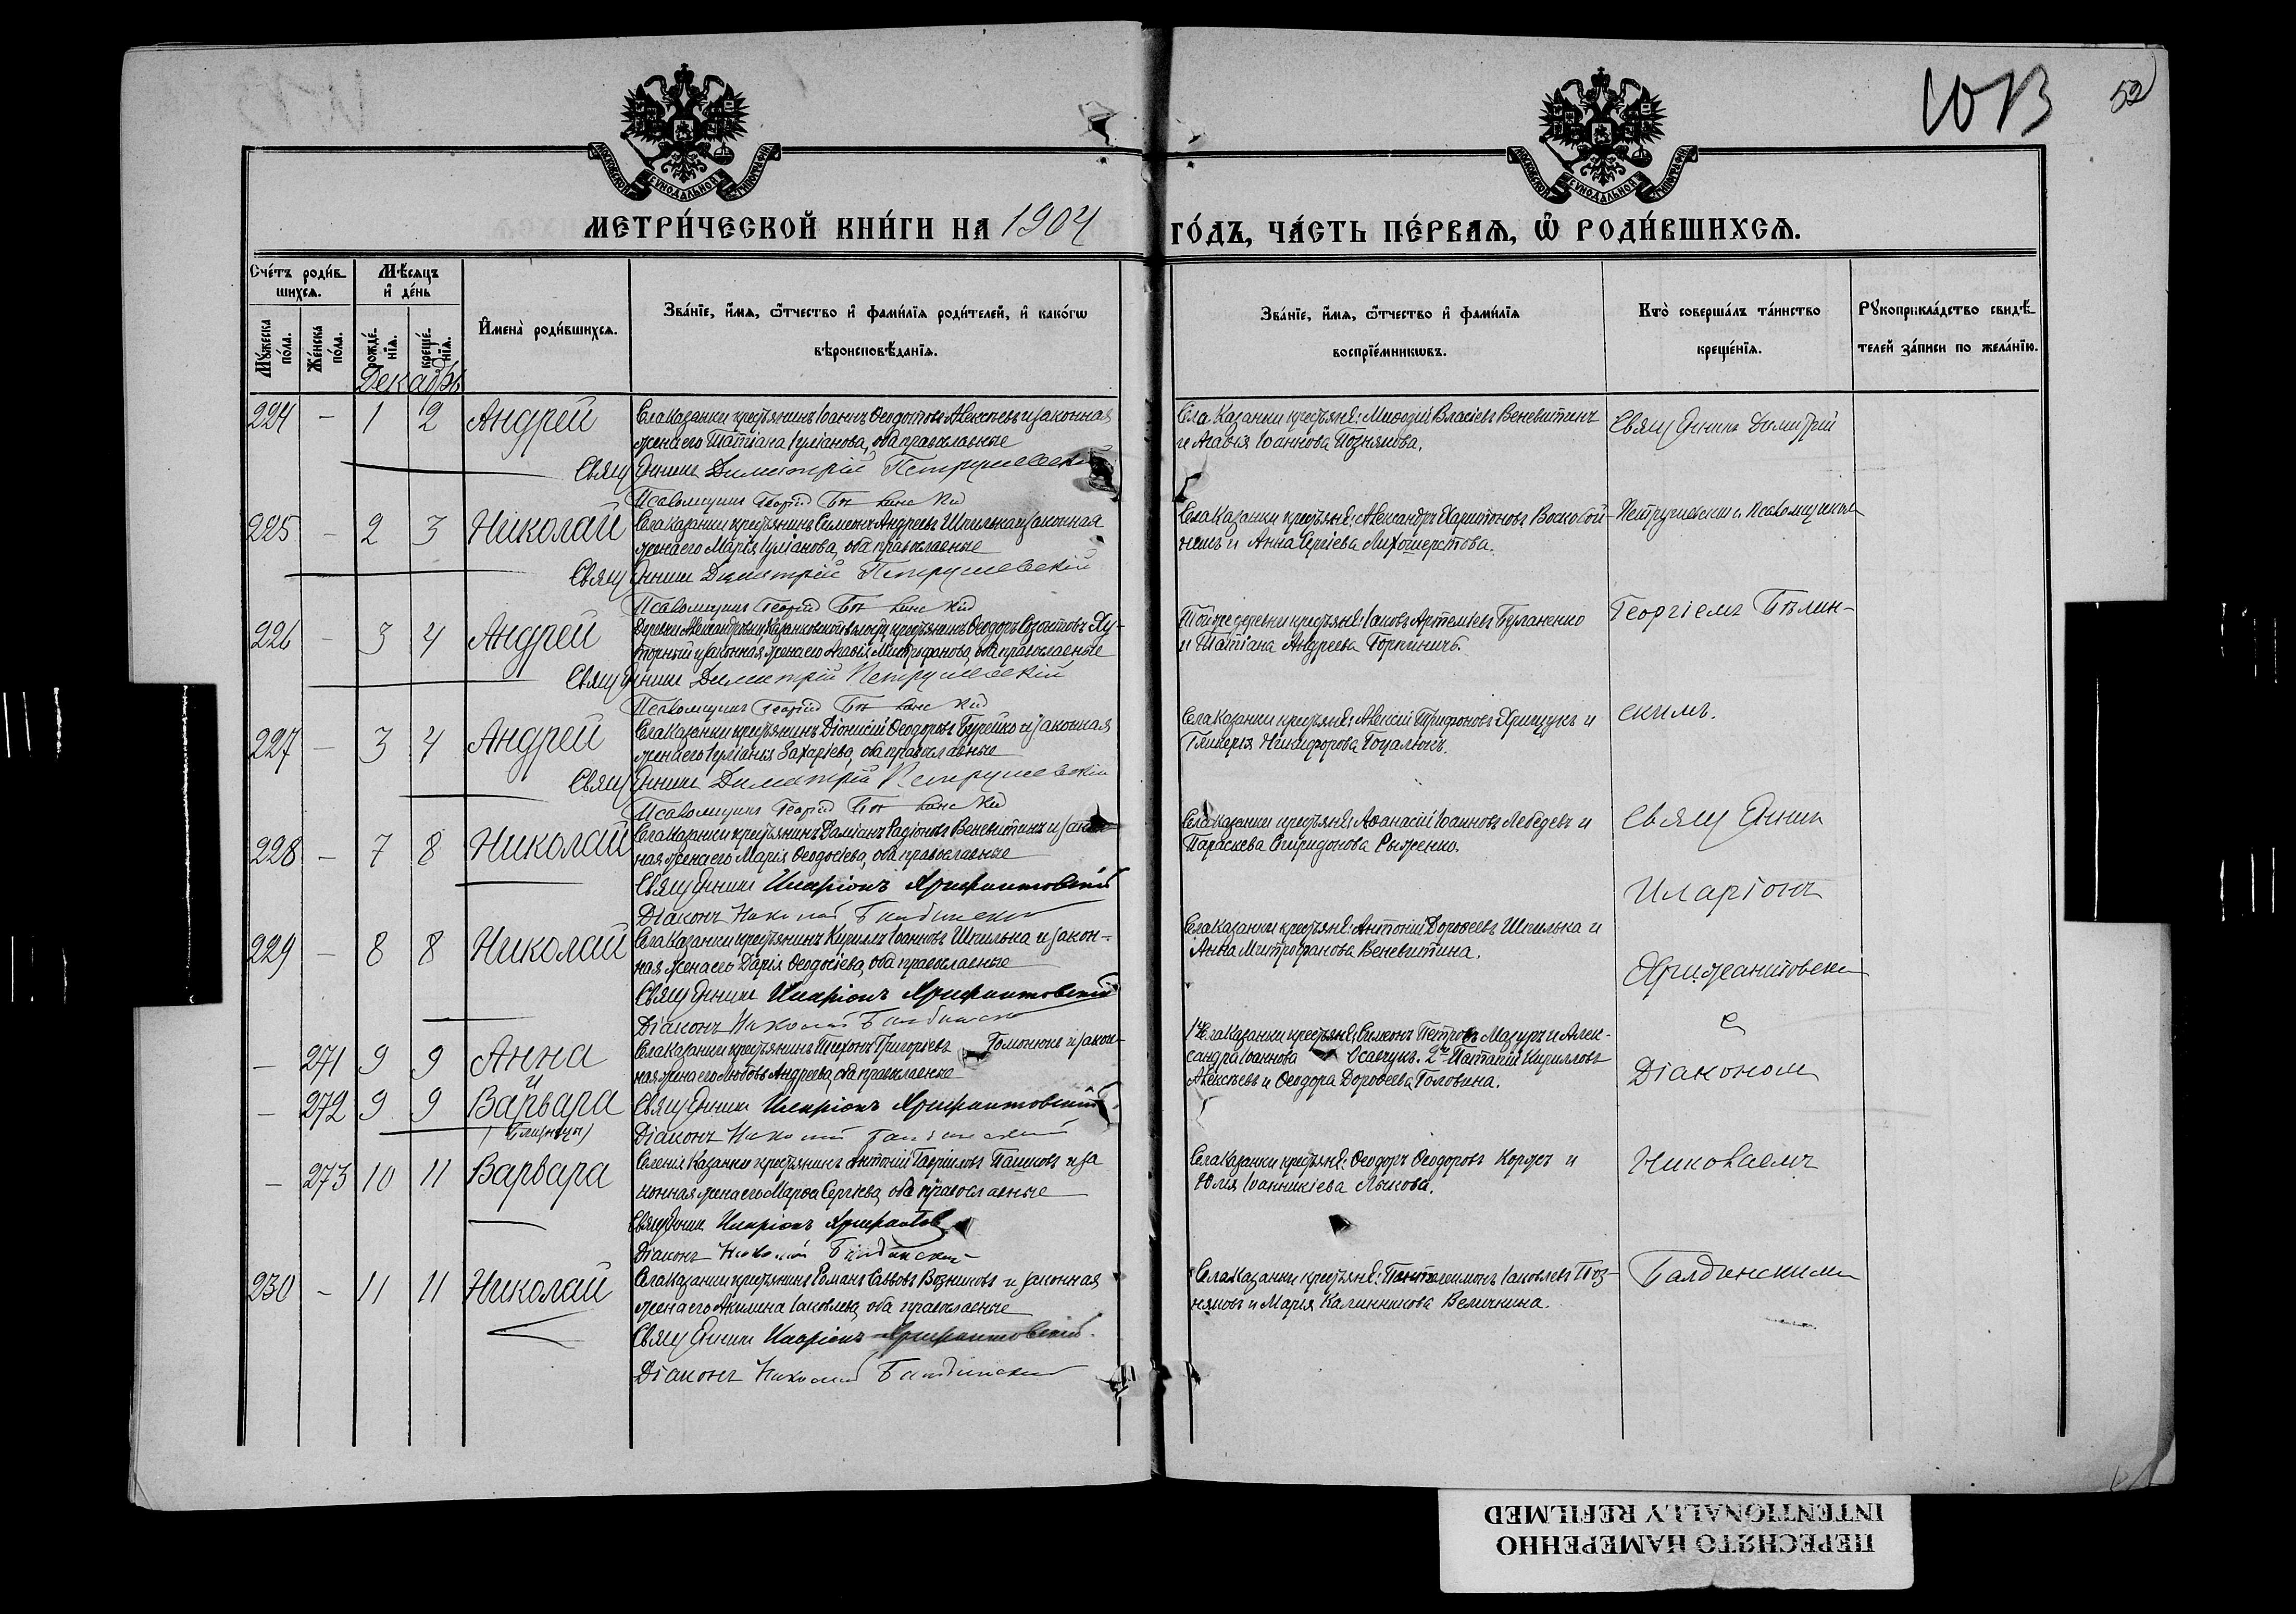 52
МОСКОВСКОЙ СѴНОДАЛЬНОЙ ТИПОГРАФІИ
МОСКОВСКОЙ СѴНОДАЛЬНОЙ ТИПОГРАФІИ
МЕТРИ́ЧЕСКОЙ КНИ́ГИ НА 1904 ГО́ДЪ, ЧА́СТЬ ПЕ́РВАѦ, Ѡ҆ РОДИ́ВШИХСѦ.
Сче́тъ роди́в-
шихсѧ.
Мѣ́сѧцъ
и҆ де́нь
Мꙋ́жеска
по́ла.
Же́нска
по́ла.
рожде́-
нїѧ.
креще́-
нїѧ.
И҆мена̀ роди́вшихсѧ.
Зва́нїе, и҆́мѧ, ѻ҆́тчество и҆ фами́лїѧ роди́телей, и҆ како́гѡ
вѣроисповѣ́данїѧ.
Зва́нїе, и҆́мѧ, ѻ҆́тчество и҆ фами́лїѧ
воспрїе́мникѡвъ.
Кто̀ соверша́лъ та́инство
креще́нїѧ.
Рꙋкоприкла́дство свидѣ́-
телей за́писи по жела́нїю.
Декабрь
224 – 1 2 Андрей
Села Казанки крестьянинъ Іоаннъ Ѳеодотовъ Алексѣевъ и законная
жена его Татіана Іуліанова, оба православные
Священникъ Димитрій Петрушевскій
Псаломщикъ Георгій Бѣлинскій
Села Казанки крестьяне: Меѳодій Власіевъ Веневитинъ
и Агаѳія Іоаннова Познякова.
Священникъ Димитрій
225 – 2 3 Николай
Села Казанки крестьянинъ Симеонъ Андреевъ Шпилька и законная
жена его Марія Іуліанова, оба православные
Священникъ Димитрій Петрушевскій
Псаломщикъ Георгій Бѣлинскій
Села Казанки крестьяне: Александръ Харитоновъ Воскобой-
никъ и Анна Сергіева Лихошерстова.
Петрушевскій съ Псаломщикомъ
226 – 3 4 Андрей
Деревни Александровки, Казанковской волости, крестьянинъ Ѳеодоръ Созонтовъ Ху-
торный и законная жена его Агаѳія Митрофанова, оба православные
Священникъ Димитрій Петрушевскій
Псаломщикъ Георгій Бѣлинскій
Той же деревни крестьяне: Іаковъ Артеміевъ Буланенко
и Татіана Андреева Горпиничъ.
Георгіемъ Бѣлин-
227 – 3 4 Андрей
Села Казанки крестьянинъ Діонисій Ѳеодоровъ Бурейко и законная
жена его Іуліанія Захаріева, оба православные
Священникъ Димитрій Петрушевскій
Псаломщикъ Георгій Бѣлинскій
Села Казанки крестьяне: Алексій Трифоновъ Хрищукъ и
Гликерія Никифорова
скимъ.
228 – 7 8 Николай
Села Казанки крестьянинъ Даміанъ Родіоновъ Веневитинъ и закон-
ная жена его Марія Ѳеодосіева, оба православные
Священникъ Иларіонъ Хрисанѳовскій
Діаконъ Николай Балдинскій
Села Казанки крестьяне: Аѳанасій Іоанновъ Лебедевъ и
Параскева Спиридонова Рыженко.
Священник
Иларіонъ
229 – 8 8 Николай
Села Казанки крестьянинъ Кириллъ Іоанновъ Шпилька и закон-
ная жена его Дарія Ѳеодосіева, оба православные
Священникъ Иларіонъ
Діаконъ Николай Балдинскій
Села Казанки крестьяне: Антоній Дороѳеевъ Шпилька и
Анна Митрофанова Веневитина.
– 271 9 9 Анна
и
– 272 9 9 Варвара
(Близнецы)
Села Казанки крестьянинъ Тихонъ Григоріевъ Гомонюкъ и закон-
ная жена его Любовь Андреева, оба православные
Священникъ Иларіонъ
Діаконъ Николай Балдинскій
1й Села Казанки крестьяне: Симеонъ Петровъ Мазуръ и Алек-
сандра Іоаннова Осавчукъ. 2й Кирилловъ
Алексѣевъ и Ѳеодора Дороѳеева Головина.
с
Діакономъ
– 273 10 11 Варвара
Селенія Казанки крестьянинъ Антоній Гавріиловъ Пашковъ и за
конная жена его Марѳа Сергіева, оба православные
Священникъ Иларіонъ
Діаконъ Николай Балдинскій
Села Казанки крестьяне: Ѳеодоръ Ѳеодоровъ Коржъ и
Юлія Іоанникіева Лыкова.
Николаемъ
230 – 11 11 Николай
Села Казанки крестьянинъ Романъ Саввовъ Возниковъ и законная
жена его Акилина Іаковлева, оба православные
Священникъ Иларіонъ
Діаконъ Николай Балдинскій
Села Казанки крестьяне: Пантелеимонъ Іаковлевъ Поз-
няковъ и Марія Калинникова Величкина.
Балдинскимъ
ПЕРЕСНЯТО НАМЕРЕННО
INTENTIONALLY REFILMED